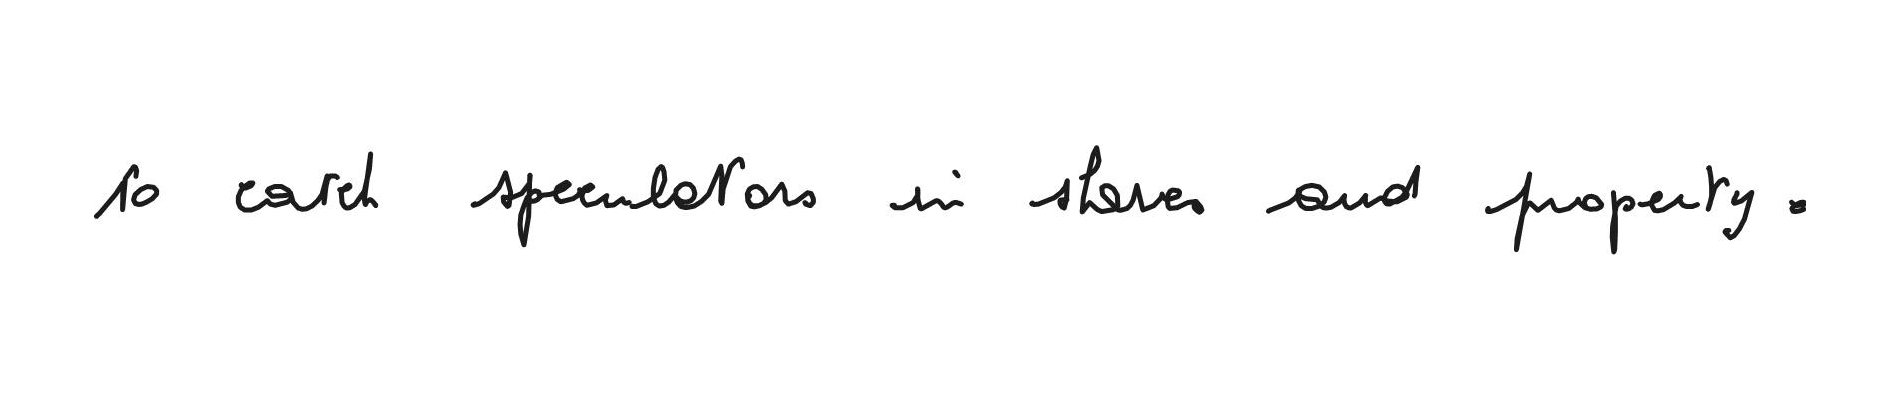 to catch speculators in shares and property.